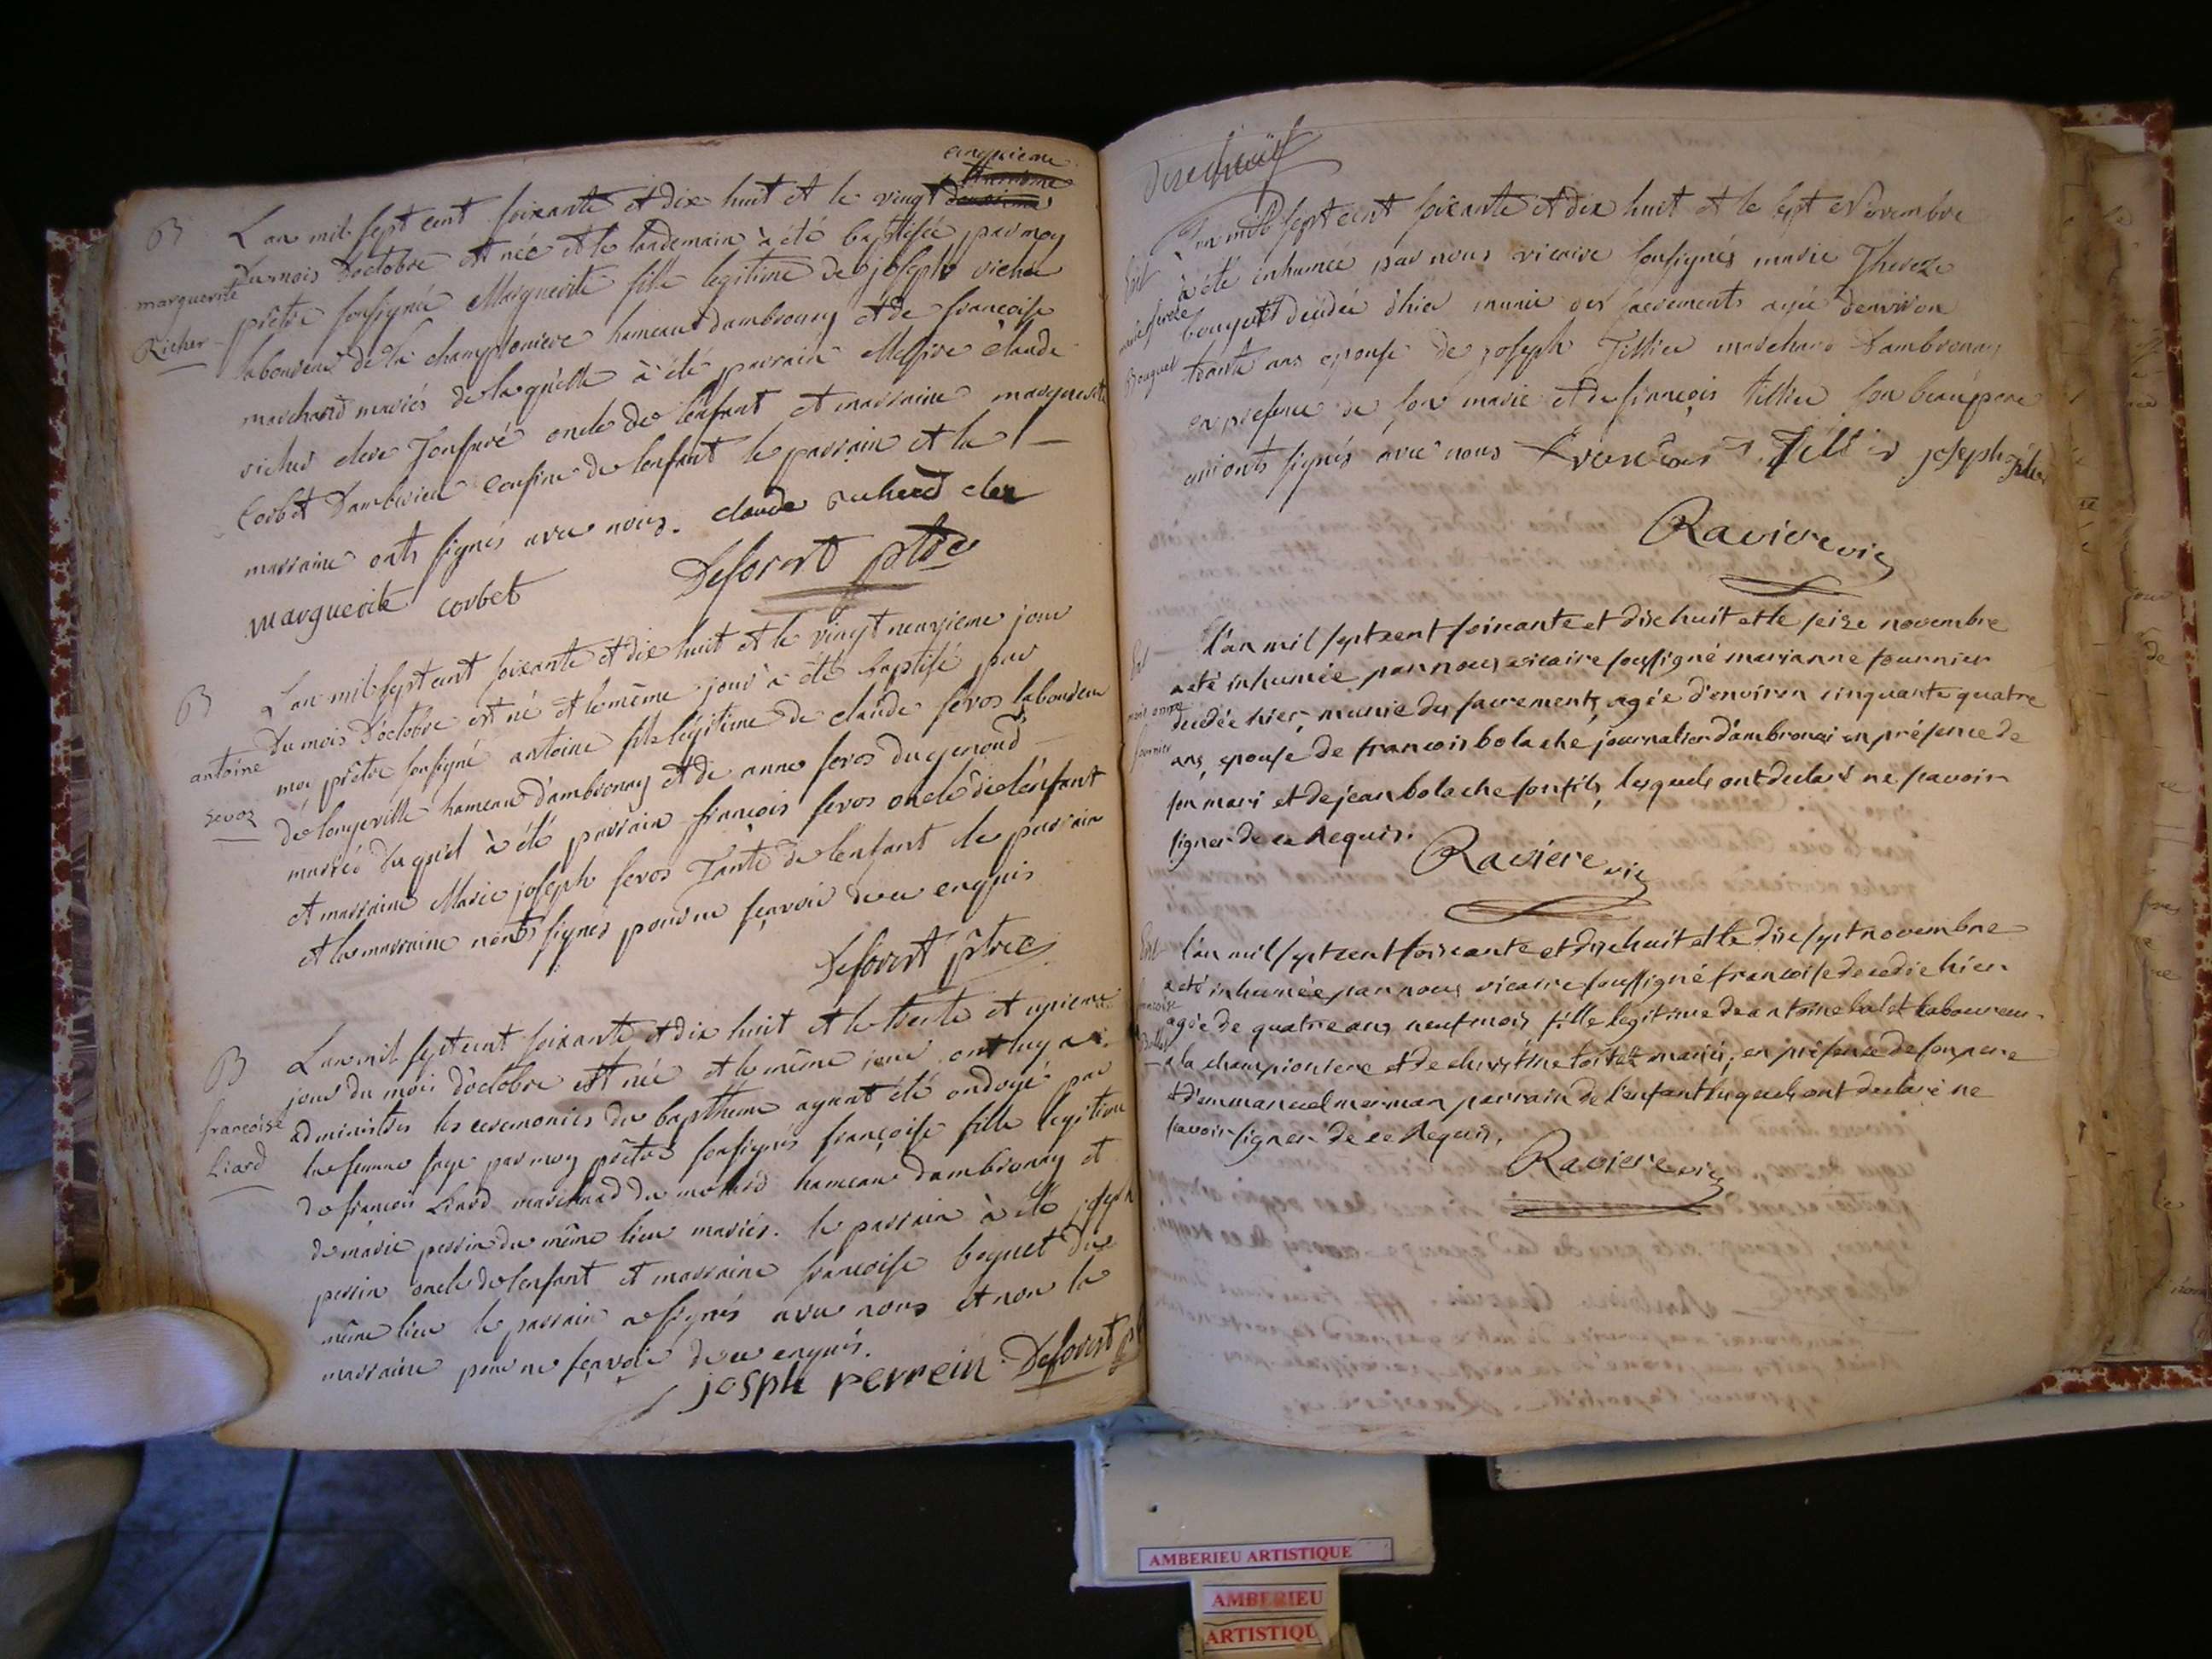 cinquieme
B
L'an mil sept cent soixante et dix huit et le vingt
du mois d'octobre est née et le landemain à été baptisée par moy
marguerite
prêtre sousigné Marguerite fille legitime de joseph richer
Richer
laboureur de la championiere hameau d'ambronay et de françoise
marchand mariés de laquelle à été parrain Messire claude
richer clerc Tonsuré oncle de l'enfant et marraine marguerite
Corbet d'amberieu cousine de l'enfant le parrain et la
marraine onts signés avec nous. claude richerd clerc
marguerite corbet
Deforest ptre
B
L'an mil sept cent soixante et dix huit et le vingt neuvieme jour
du mois d'octobre est né et le même jour à été baptisé par
antoine
moi prêtre sousigné antoine fils légitime de claude sevos laboureur
sevoz
de longeville hameau d'ambronay et de anne sevos du genoud
mariés du quel à été parrain françois sevos oncle de l'enfant
et marraine Marie joseph sevos Tante de l'enfant le parrain
et la marraine n'onts signés pour ne sçavoir de ce enquis
Deforest ptre
B
L'an mil sept cent soixante et dix huit et le trente et unieme
jour du mois d'octobre est née et le même jour ont luy a
francoise
administrés les ceremonies du bapthême ayant été ondoyé par
Liard
la femme sage par moy prêtre sousignés françoise fille legitime
de françois Liard marchand du molard hameau d'ambronay et
de marie perrin du même lieu mariés. le parrain à été joseph
perrin oncle de l'enfant et marraine françoise boguet du
même lieu le parrain a signés avec nous et non la
marraine pour ne sçavoir de ce enquis.
josph perrein Deforest
dixehuit
L'an mil sept cent soixante et dix huit et le sept Novembre
à été inhumée par nous vicaire sousignés marie Thereze
bouquet décédée d'hier munie des sacrements agée d'environ
Bouquet
trante ans epouse de joseph Tillier marchand d'ambronay
en presence de son marie et de françois tillier son beaupere
qui onts signés avec nous francois Tillier joseph
Raviere vic
l'an mil sept cent soixante et dix huit et le seize novembre
a eté inhumée par nous vicaire soussigné marianne fournier
decedée hier, munie des sacrements, agée d'environ cinquante quatre
fournier
ans, epouse de francois bolache journalier d'ambronai en présence de
son mari et de jean bolache son fils, lesquels ont declaré ne scavoir
signer de ce Requis.
Raviere vic
l'an mil sept cent soixante et dix huit et le dix sept novembre
a eté inhumée par nous vicaire soussigné francoise decedée hier
francoise
agée de quatre ans neuf mois fille legitime de antoine balet laboureur
a la championiere et de christine mariés, en présence de son pere
et d'emmanuel merman parrain de l'enfant lesquels ont declaré ne
scavoir signer de ce Requis.
Raviere vic
AMBERIEU ARTISTIQUE
AMBERIEU
ARTISTIQU